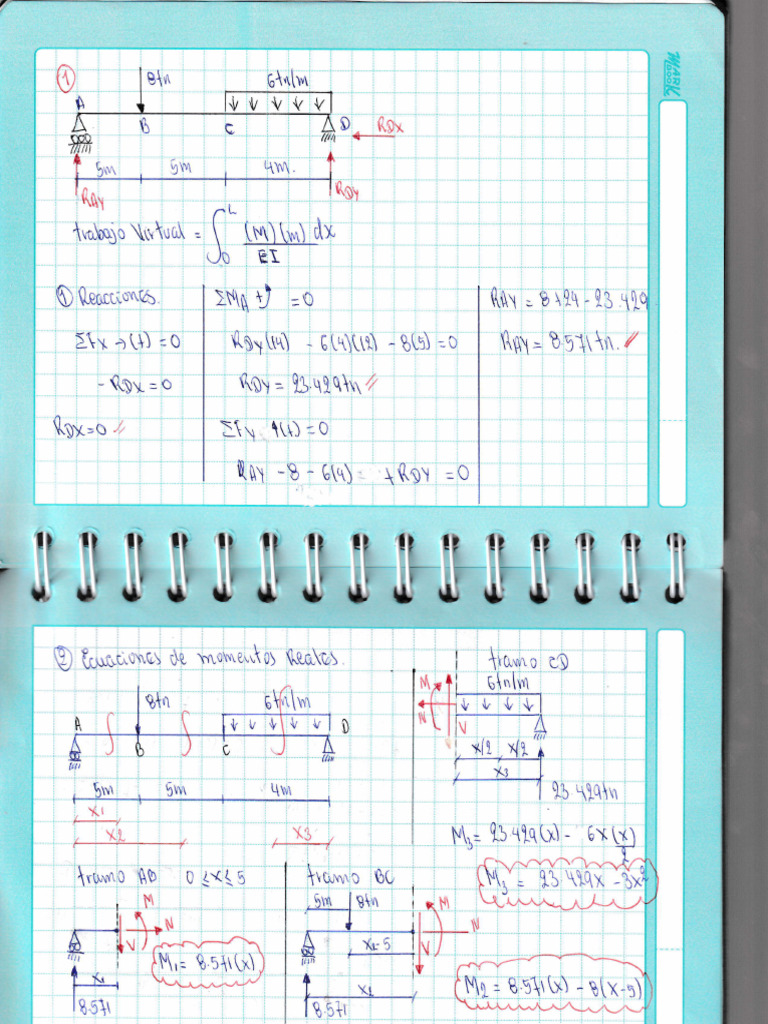 MARK
1
8tn
6tn/m
A
B
C
D
RDX
5m
5m
4m.
RAY
RDY
trabajo Virtual = ∫₀ᴸ (M)(m) dx / EI
① Reacciones.
ΣFx →(+) = 0
- RDX = 0
RDX = 0 //
ΣMA +) = 0
RDY(14) - 6(4)(12) - 8(5) = 0
RDY = 23.429tn //
ΣFy ↑(+) = 0
RAY - 8 - 6(4) + RDY = 0
RAY = 8+24-23.429
RAY = 8.571tn. //
② Ecuaciones de momentos Reales.
8tn
6tn/m
A
B
C
D
5m
5m
4m
X1
X2
X3
tramo CD
6tn/m
M
N
V
x/2
x/2
X3
23.429tn
M3 = 23.429(x) - 6x(x)/2
M3 = 23.429x - 3x²
tramo AB 0 ≤ x ≤ 5
M
N
V
X1
8.571
M1 = 8.571(x)
tramo BC
5m
8tn
M
N
V
X2-5
X2
8.571
M2 = 8.571(x) - 8(x-5)